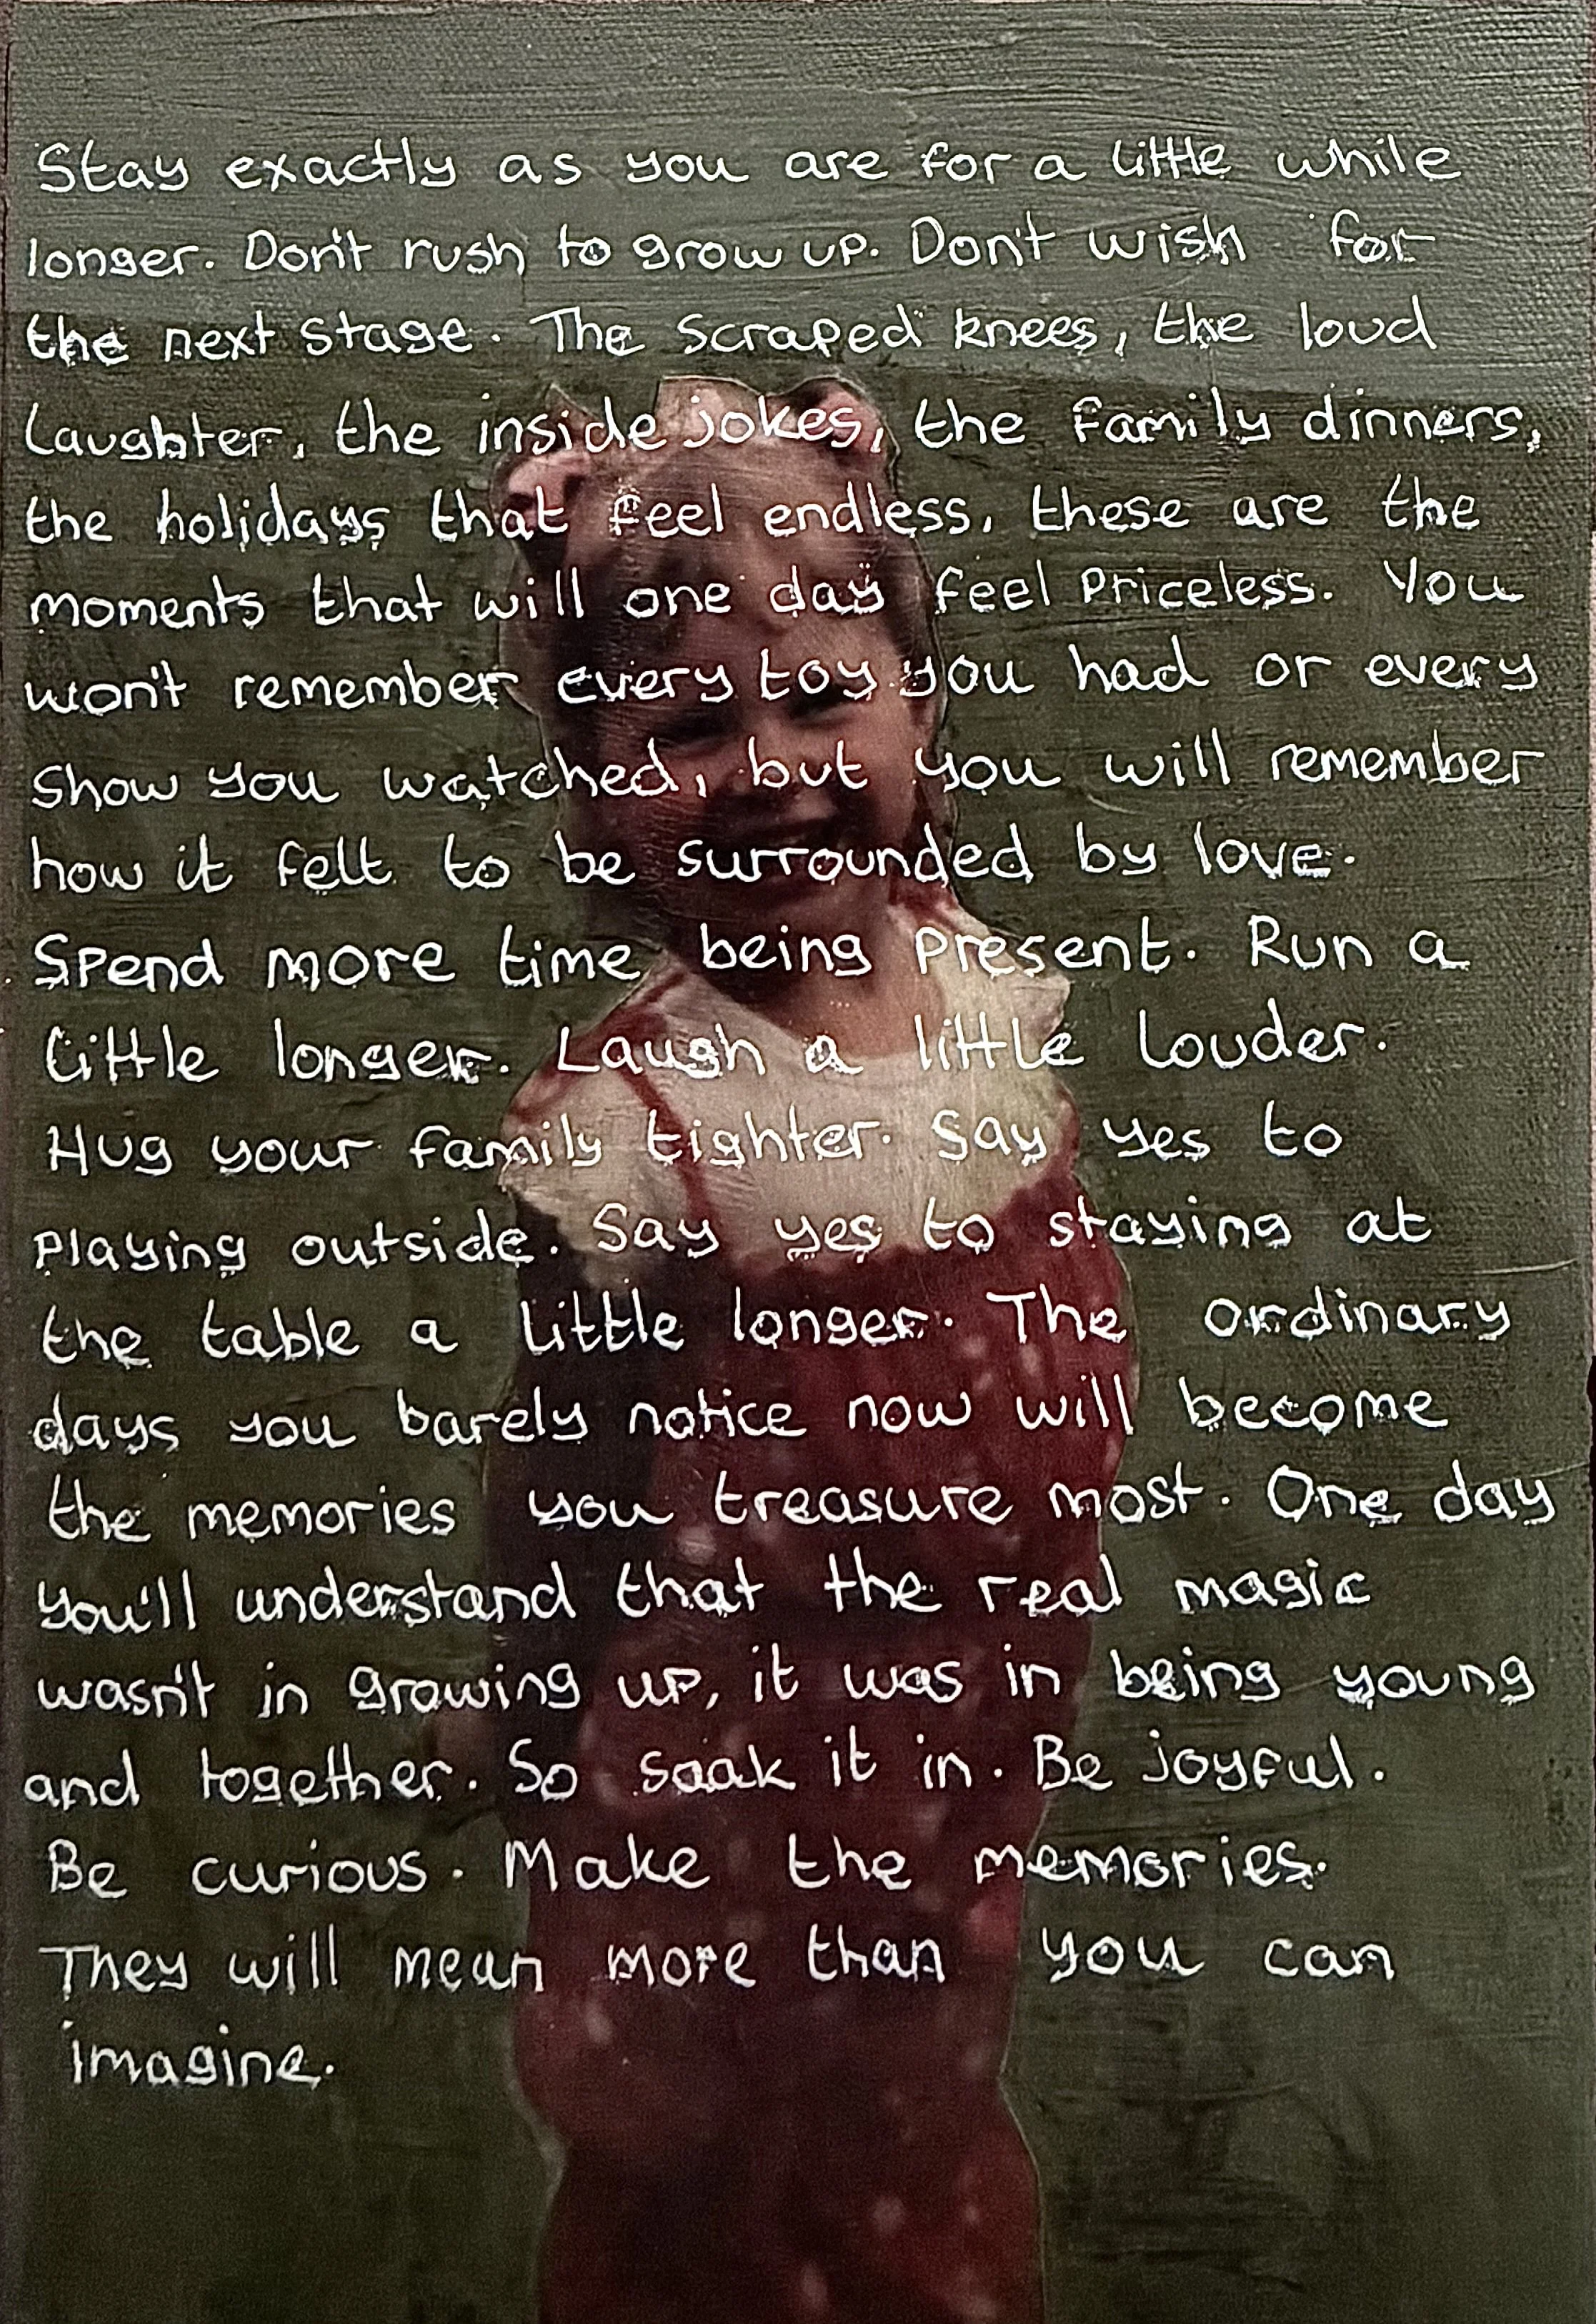 Stay exactly as you are for a little while
longer. Don't rush to grow up. Don't wish for
the next stage. The scraped knees, the loud
laughter, the inside jokes, the family dinners,
the holidays that feel endless, these are the
moments that will one day feel priceless. You
won't remember every toy you had or every
show you watched, but you will remember
how it felt to be surrounded by love.
Spend more time being present. Run a
little longer. Laugh a little louder.
Hug your family tighter. Say yes to
playing outside. Say yes to staying at
the table a little longer. The ordinary
days you barely notice now will become
the memories you treasure most. One day
you'll understand that the real magic
wasn't in growing up, it was in being young
and together. So soak it in. Be joyful.
Be curious. Make the memories.
They will mean more than you can
imagine.